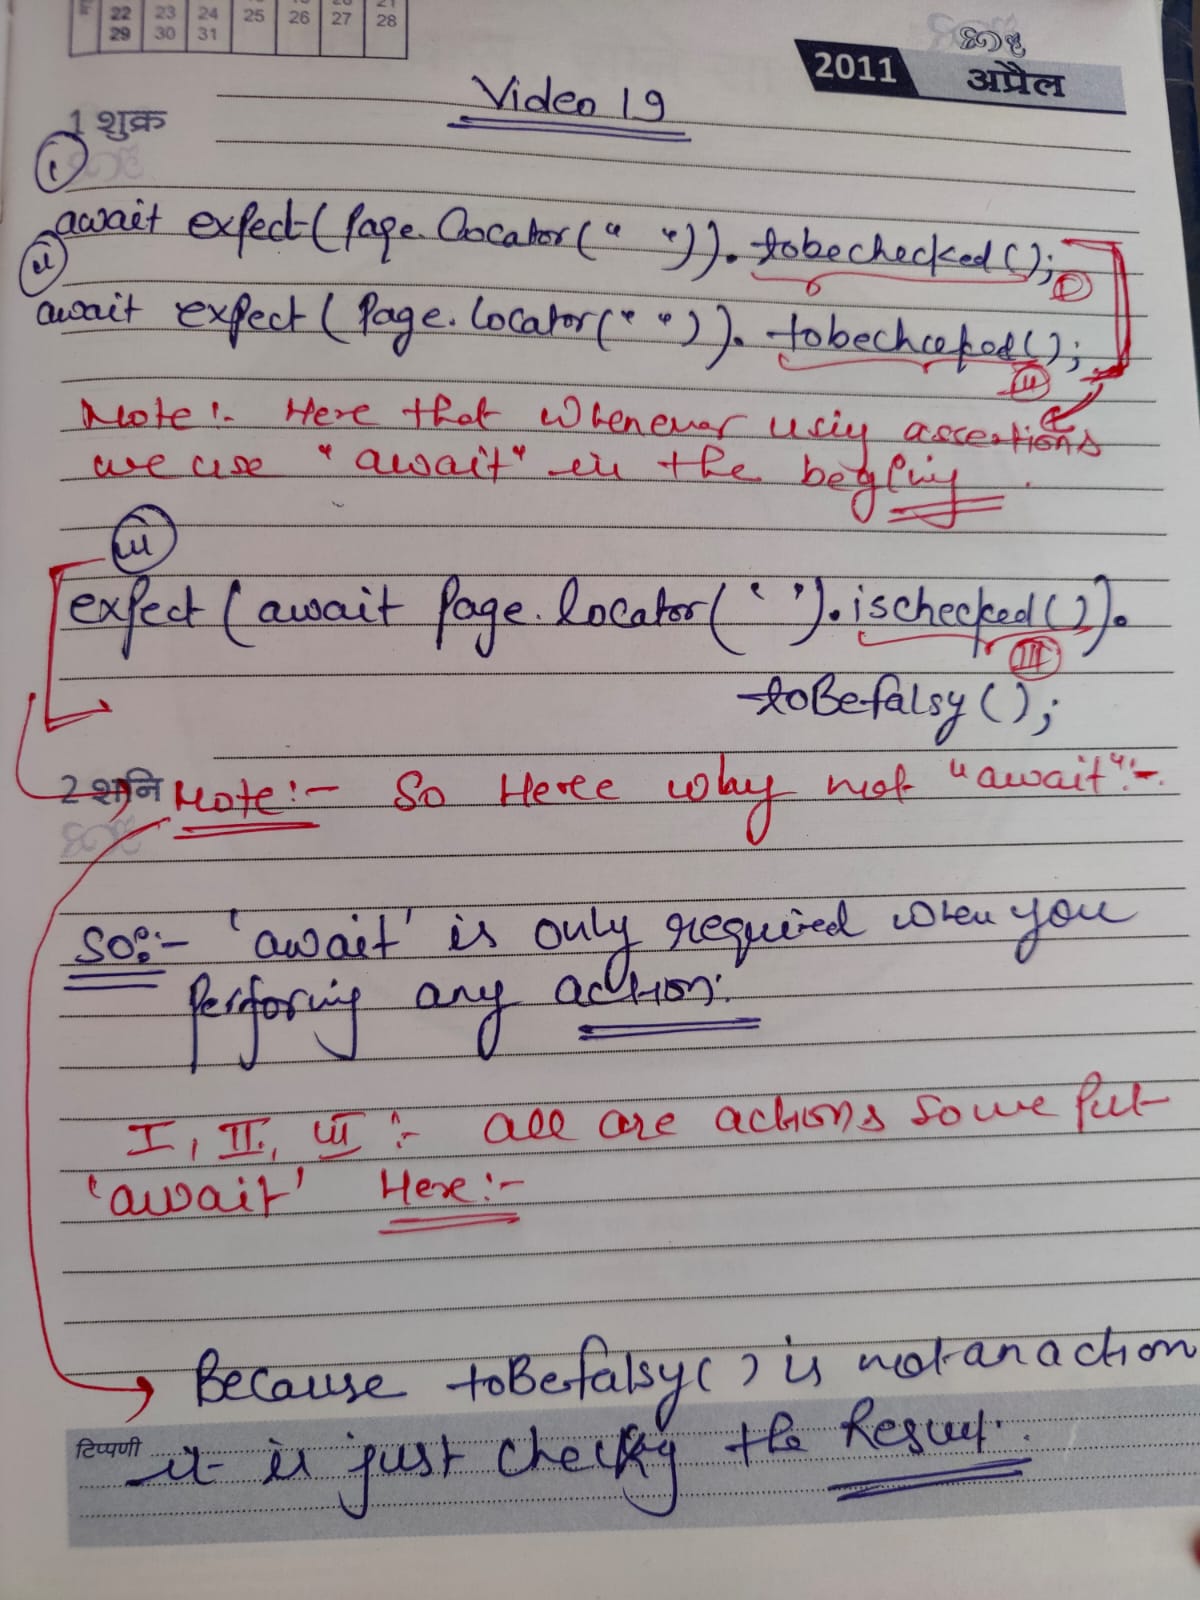 22 23 24 25 26 27 28
29 30 31
2011 अप्रैल
Video 19
1 शुक्र
i
await expect(Page.locator(" ")).tobechecked(); I
ii
await expect(Page.locator(" ")).tobechceked(); II
Note:- Here that whenever using assertions
we use "await" in the
iii
expect(await Page.locator(' ').ischecked()).
III
toBefalsy();
2 शनि Note:- So Here why not "await":-
So:- 'await' is only required when you
perforing any action.
I, II, III :- all are actions so we put
'await' Here:-
Because toBefalsy() is not an action
टिप्पणी it is just checking the Result.